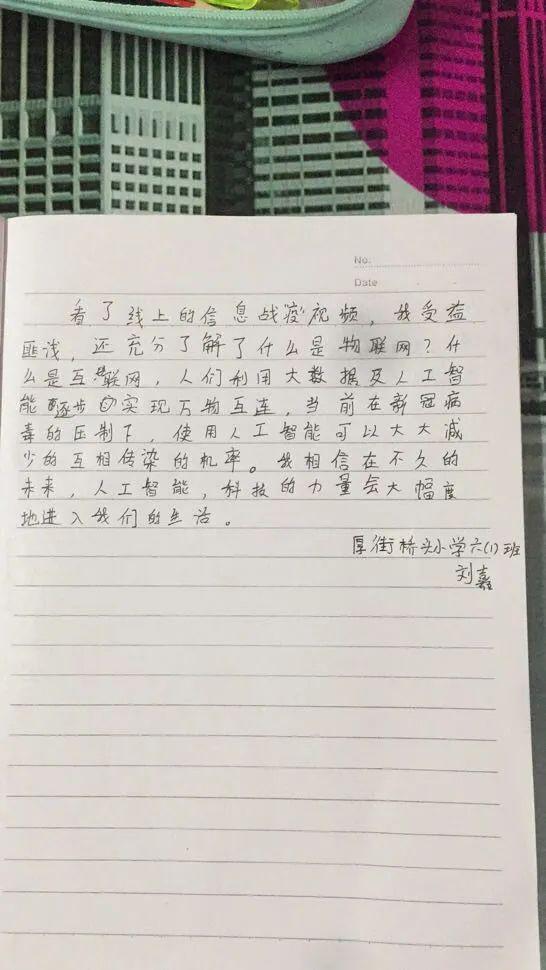 No.
Date
看了线上的信息战疫视频，我受益
匪浅，还充分了解了什么是物联网？什
么是互联网，人们利用大数据及人工智
能逐步实现万物互连，当前在新冠病
毒的压制下，使用人工智能可以大大减
少的互相传染的机率。我相信在不久的
未来，人工智能，科技的力量会大幅度
地进入我们的生活。
厚街桥头小学六(1)班
刘鑫